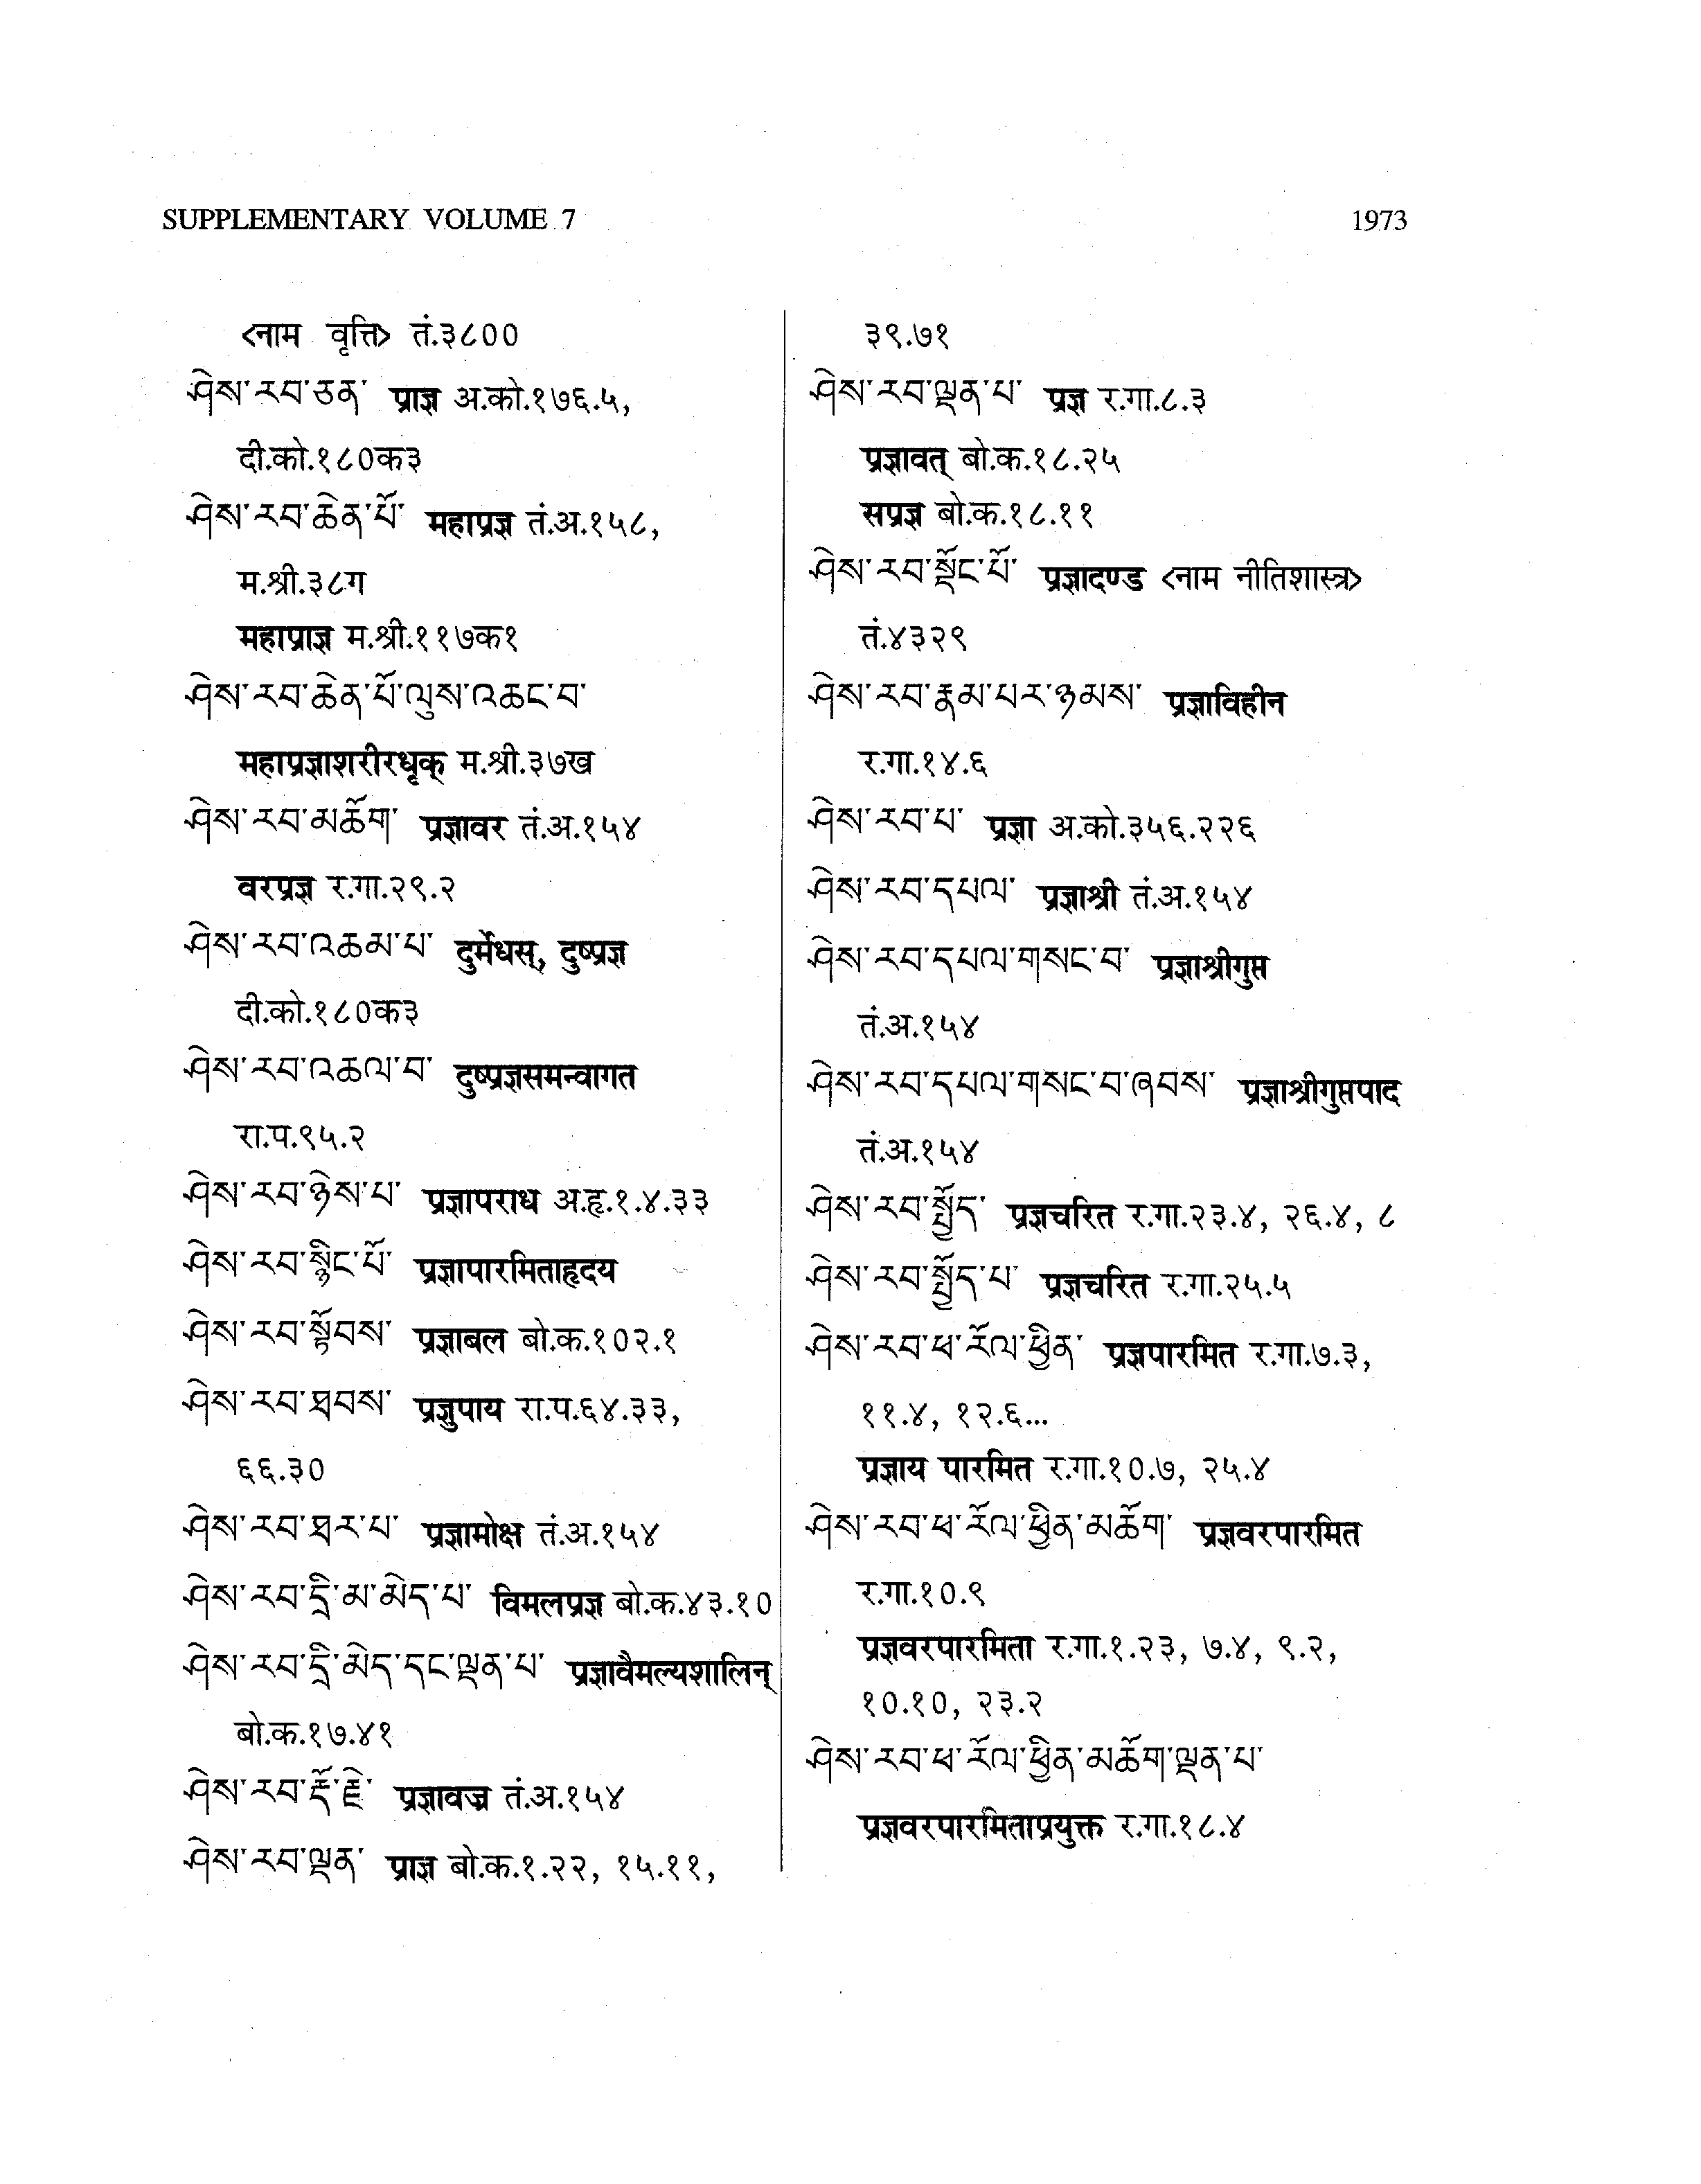 SUPPLEMENTARY VOLUME 7
1973
<नाम वृत्ति> तं.३८००
ཤེས་རབ་ཅན་ प्राज्ञ अ.को.१७६.५,
दी.को.१८०क३
ཤེས་རབ་ཆེན་པོ་ महाप्रज्ञ तं.अ.१५८,
म.श्री.३८ग
महाप्राज्ञ म.श्री.११७क१
ཤེས་རབ་ཆེན་པོ་ལུས་འཆང་བ་
महाप्रज्ञाशरीरधृक् म.श्री.३७ख
ཤེས་རབ་མཆོག་ प्रज्ञावर तं.अ.१५४
वरप्रज्ञ र.गा.२९.२
ཤེས་རབ་འཆམ་པ་ दुर्मेधस्, दुष्प्रज्ञ
दी.को.१८०क३
ཤེས་རབ་འཆལ་བ་ दुष्प्रज्ञसमन्वागत
रा.प.९५.२
ཤེས་རབ་ཉེས་པ་ प्रज्ञापराध अ.हृ.१.४.३३
ཤེས་རབ་སྙིང་པོ་ प्रज्ञापारमिताहृदय
ཤེས་རབ་སྟོབས་ प्रज्ञाबल बो.क.१०२.१
ཤེས་རབ་ཐབས་ प्रज्ञुपाय रा.प.६४.३३,
६६.३०
ཤེས་རབ་ཐར་པ་ प्रज्ञामोक्ष तं.अ.१५४
ཤེས་རབ་དྲི་མ་མེད་པ་ विमलप्रज्ञ बो.क.४३.१०
ཤེས་རབ་དྲི་མེད་དང་ལྡན་པ་ प्रज्ञावैमल्यशालिन्
बो.क.१७.४१
ཤེས་རབ་རྡོ་རྗེ་ प्रज्ञावज्र तं.अ.१५४
ཤེས་རབ་ལྡན་ प्राज्ञ बो.क.१.२२, १५.११,
३९.७१
ཤེས་རབ་ལྡན་པ་ प्रज्ञ र.गा.८.३
प्रज्ञावत् बो.क.१८.२५
सप्रज्ञ बो.क.१८.११
ཤེས་རབ་སྡོང་པོ་ प्रज्ञादण्ड <नाम नीतिशास्त्र>
तं.४३२९
ཤེས་རབ་རྣམ་པར་ཉམས་ प्रज्ञाविहीन
र.गा.१४.६
ཤེས་རབ་པ་ प्रज्ञा अ.को.३५६.२२६
ཤེས་རབ་དཔལ་ प्रज्ञाश्री तं.अ.१५४
ཤེས་རབ་དཔལ་གསང་བ་ प्रज्ञाश्रीगुप्त
तं.अ.१५४
ཤེས་རབ་དཔལ་གསང་བ་ཞབས་ प्रज्ञाश्रीगुप्तपाद
तं.अ.१५४
ཤེས་རབ་སྤྱོད་ प्रज्ञचरित र.गा.२३.४, २६.४, ८
ཤེས་རབ་སྤྱོད་པ་ प्रज्ञचरित र.गा.२५.५
ཤེས་རབ་ཕ་རོལ་ཕྱིན་ प्रज्ञपारमित र.गा.७.३,
११.४, १२.६...
प्रज्ञाय पारमित र.गा.१०.७, २५.४
ཤེས་རབ་ཕ་རོལ་ཕྱིན་མཆོག་ प्रज्ञवरपारमित
र.गा.१०.९
प्रज्ञवरपारमिता र.गा.१.२३, ७.४, ९.२,
१०.१०, २३.२
ཤེས་རབ་ཕ་རོལ་ཕྱིན་མཆོག་ལྡན་པ་
प्रज्ञवरपारमिताप्रयुक्त र.गा.१८.४